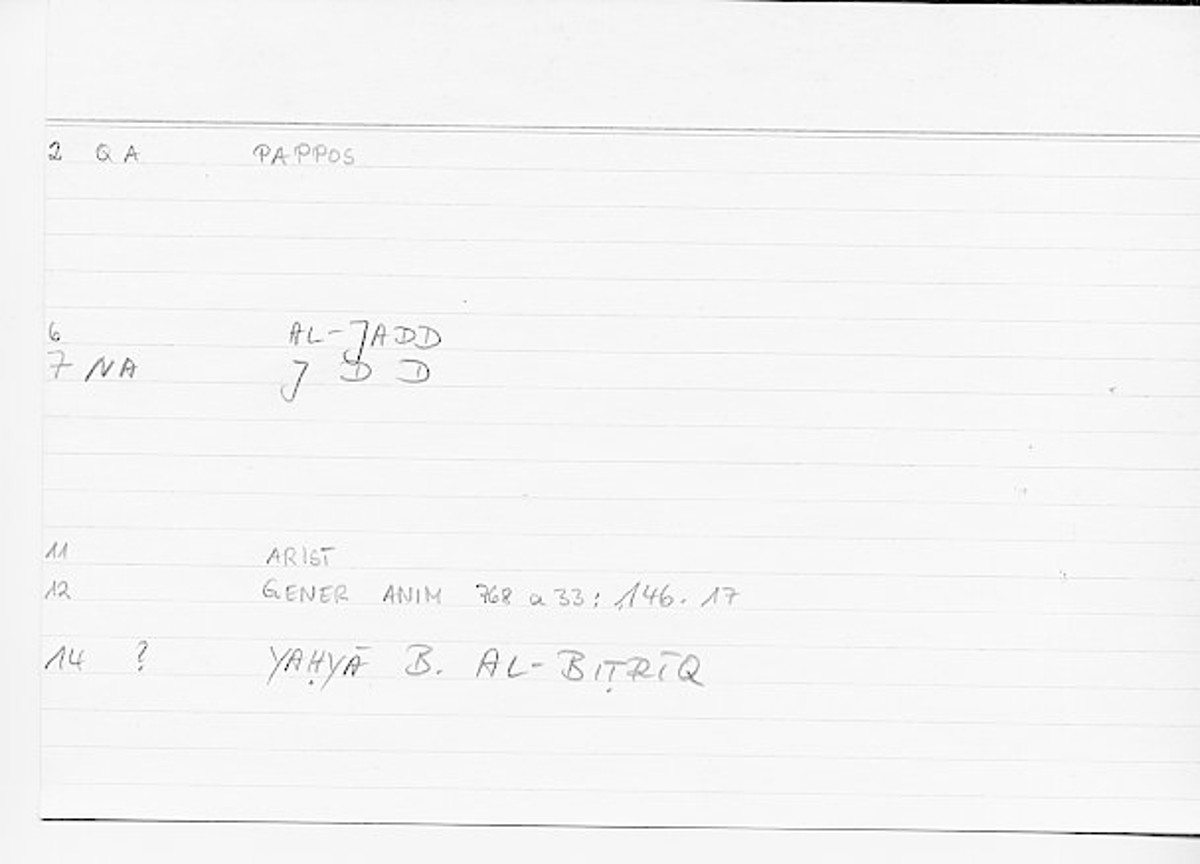 2 QA PAPPOS
6 AL-JADD
7 NA J D D
11 ARIST
12 GENER ANIM 768 a 33 : 146.17
14 ? YAḤYĀ B. AL-BIṬRĪQ